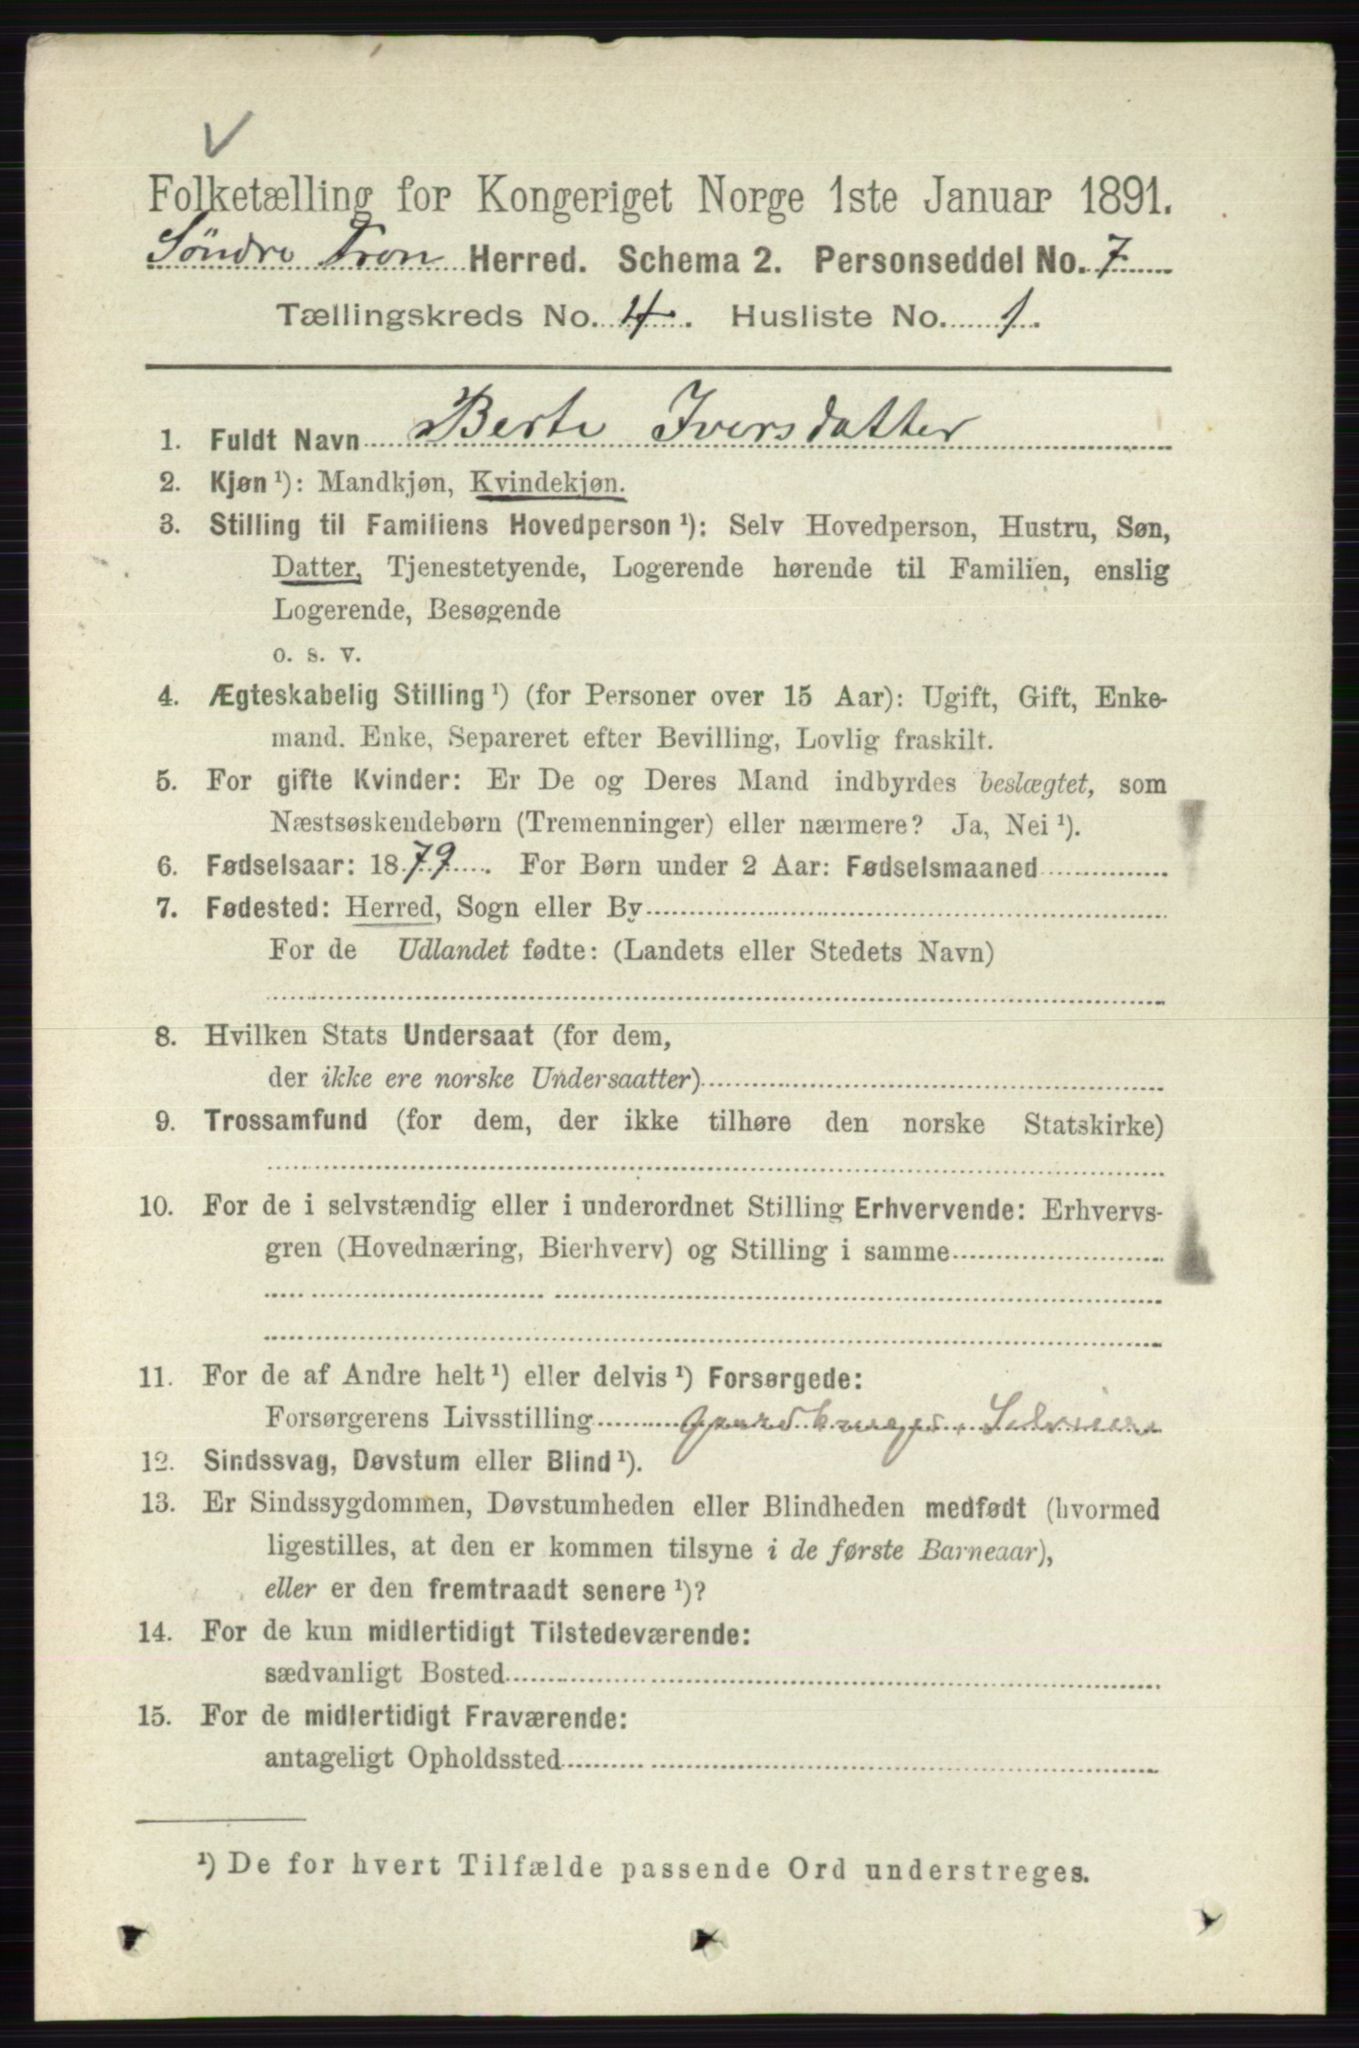 Folketælling for Kongeriget Norge 1ste Januar 1891.
Söndre Fron Herred. Schema 2. Personseddel No. 7
Tællingskreds No. 4. Husliste No. 1.
1. Fuldt Navn Berte Iversdatter
2. Kjøn ¹): Mandkjøn, Kvindekjøn.
3. Stilling til Familiens Hovedperson ¹): Selv Hovedperson, Hustru, Søn,
Datter, Tjenestetyende, Logerende hørende til Familien, enslig
Logerende, Besøgende
o. s. v.
4. Ægteskabelig Stilling ¹) (for Personer over 15 Aar): Ugift, Gift, Enke-
mand. Enke, Separeret efter Bevilling, Lovlig fraskilt.
5. For gifte Kvinder: Er De og Deres Mand indbyrdes beslægtet, som
Næstsøskendebørn (Tremenninger) eller nærmere? Ja, Nei ¹).
6. Fødselsaar: 1879. For Børn under 2 Aar: Fødselsmaaned
7. Fødested: Herred, Sogn eller By
For de Udlandet fødte: (Landets eller Stedets Navn)
8. Hvilken Stats Undersaat (for dem,
der ikke ere norske Undersaatter)
9. Trossamfund (for dem, der ikke tilhøre den norske Statskirke)
10. For de i selvstændig eller i underordnet Stilling Erhvervende: Erhvervs-
gren (Hovednæring, Bierhverv) og Stilling i samme
11. For de af Andre helt ¹) eller delvis ¹) Forsørgede:
Forsørgerens Livsstilling
12. Sindssvag, Døvstum eller Blind ¹).
13. Er Sindssygdommen, Døvstumheden eller Blindheden medfødt (hvormed
ligestilles, at den er kommen tilsyne i de første Barneaar),
eller er den fremtraadt senere ¹)?
14. For de kun midlertidigt Tilstedeværende:
sædvanligt Bosted
15. For de midlertidigt Fraværende:
antageligt Opholdssted
¹) De for hvert Tilfælde passende Ord understreges.